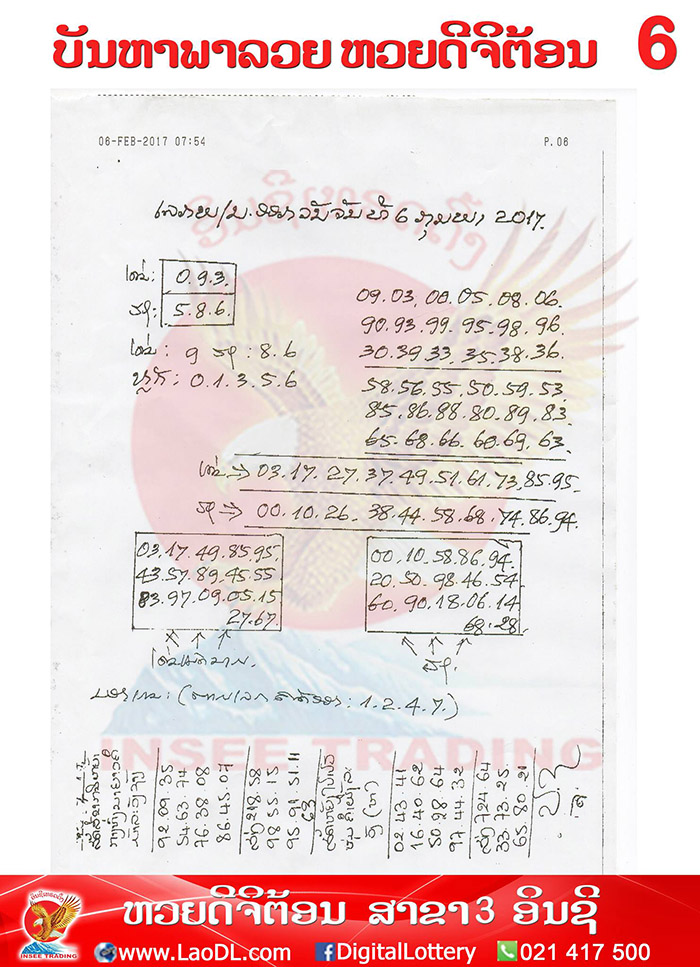 ບັນຫາພາລວຍ ຫວຍດີຈິຕ້ອນ 6
06-FEB-2017 07:54 P.06
ວັນຈັນ ທີ 6 ກຸມພາ 2017.
ເດັ່ນ: 0.9.3.
ຮອງ: 5.8.6.
ເດັ່ນ: 9 ຮອງ: 8.6
ຫຼັກ: 0.1.3.5.6
09.03.00.05.08.06.
90.93.99.95.98.96.
30.39.33.35.38.36.
58.56.55.50.59.53.
85.86.88.80.89.83.
65.68.66.60.69.63.
ເດັ່ນ → 03.17.27.37.49.51.61.73.85.95.
ຮອງ → 00.10.26.38.44.58.68.74.86.94.
03.17.49.85.95.
43.57.89.45.55
83.97.09.05.15
27.67.
00.10.58.86.94.
20.50.98.46.54.
60.90.18.06.14
68.28.
: 1.2.4.7.)
INSEE TRADING
92 09 35
54.63.74
76.38 08
86.45.07
218.58
98 55.15
95 91.51.11
63
02 43.41
16.40 62
50 28 64
97 44.32
724 64
33 73.25
65.80.21
ຫວຍດີຈິຕ້ອນ ສາຂາ 3 ອິນຊີ
INSEE TRADING
www.LaoDL.com DigitalLottery 021 417 500